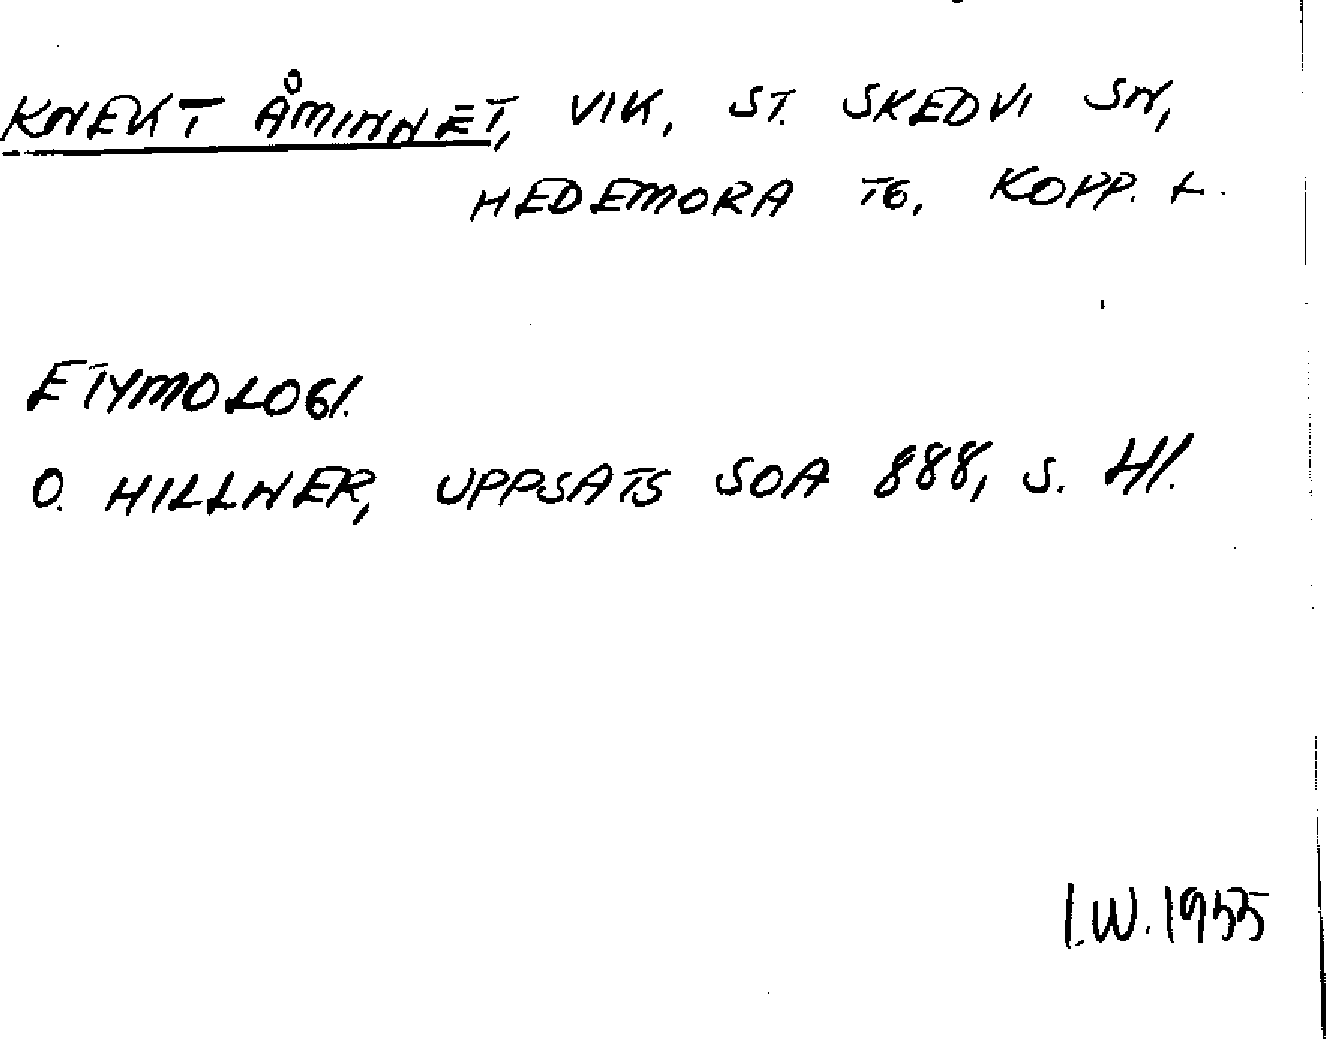 KNEKT ÅMINNET, VIK, ST. SKEDVI SN,
HEDEMORA TG, KOPP. L.
ETYMOLOGI.
O. HILLNER, UPPSATS SOA 888, S. 41.
I.W. 1955